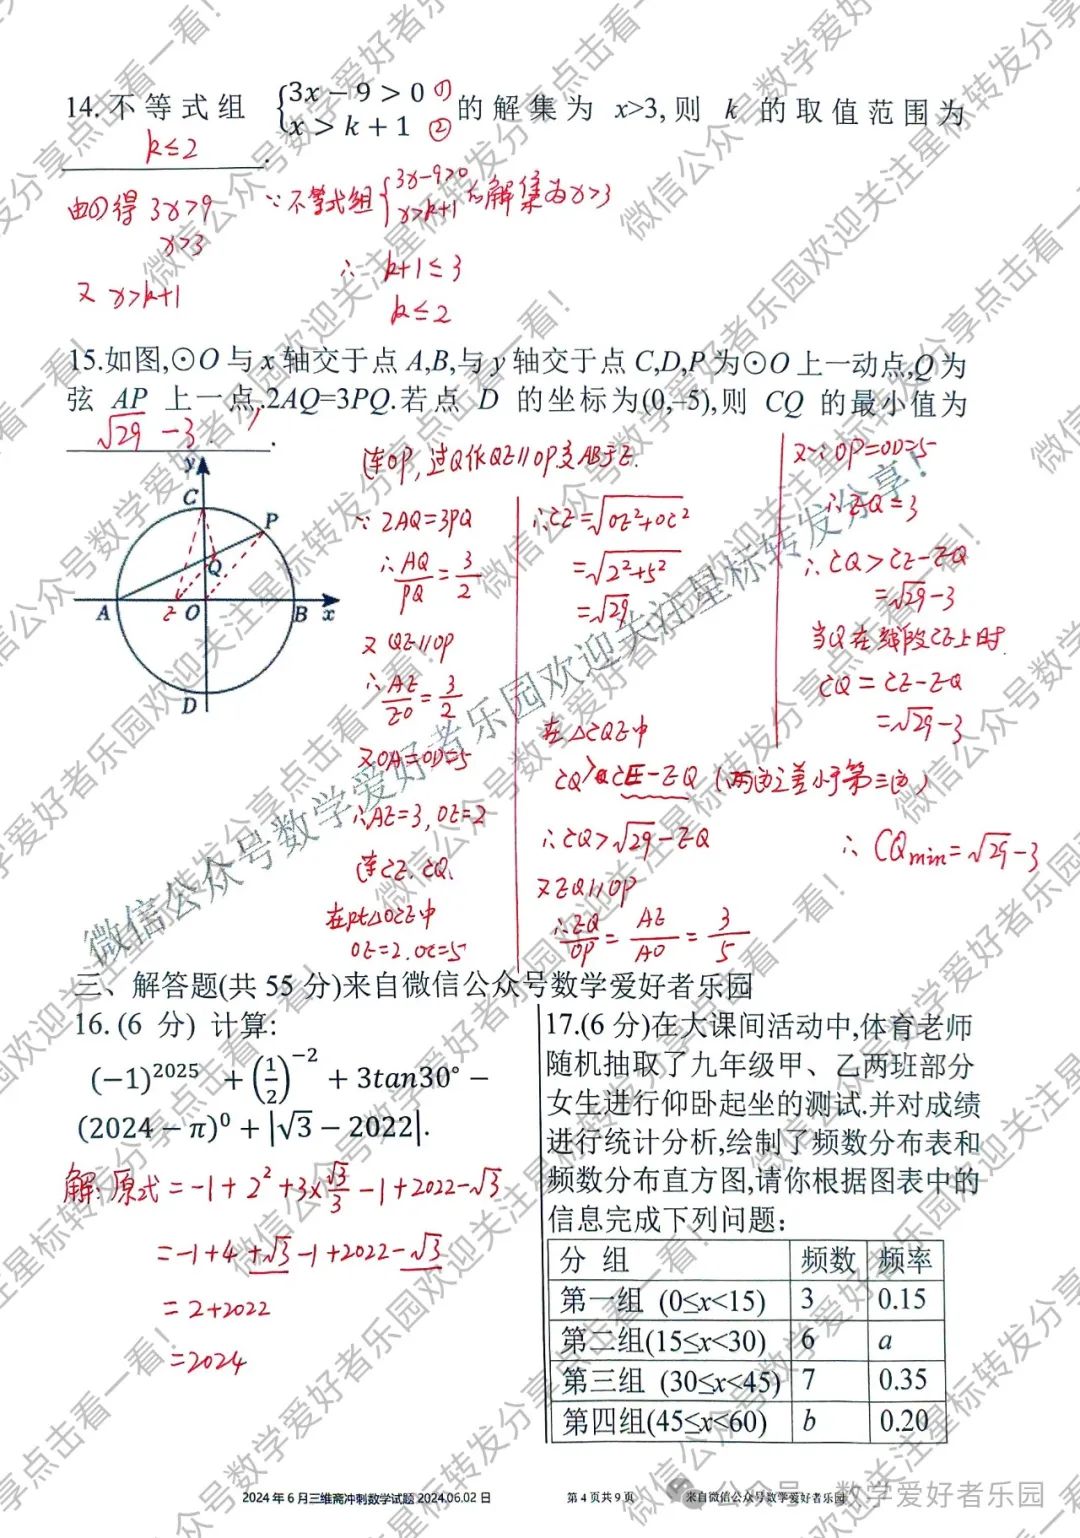 14. 不等式组 {3x－9＞0 ① x＞k＋1 ② 的解集为 x>3,则 k 的取值范围为
k≤2.
由①得 3x>9
x>3
又 x>k+1
∵不等式组{3x-9>0 x>k+1 的解集为x>3
∴ k+1≤3
k≤2
15.如图,⊙O与x轴交于点A,B,与y轴交于点C,D,P为⊙O上一动点,Q为
弦 AP 上一点.2AQ=3PQ.若点 D 的坐标为(0,–5),则 CQ 的最小值为
√29 -3.
y
C
P
Q
A
E
O
B
x
D
连OP,过Q作QE//OP交AB于E.
∵ 2AQ=3PQ
∴ AQ/PQ = 3/2
又 QE//OP
∴ AE/EO = 3/2
又OA=OD=5
∴AE=3, OE=2
连CE、CQ、
在Rt△OCE中
OE=2.OC=5
∴CE=√OE²+OC²
=√2²+5²
=√29
在△CQE中
CQ>CE-EQ (两边之差小于第三边)
∴CQ>√29-EQ
又EQ//OP
∴ EQ/OP = AE/AO = 3/5
又∵OP=OD=5
∴EQ=3
∴CQ>CE-EQ
=√29-3
当Q在线段CE上时.
CQ = CE-EQ
=√29-3
∴ CQmin=√29-3
三、解答题(共 55 分)来自微信公众号数学爱好者乐园
16. (6 分) 计算:
(−1)²⁰²⁵ + (1/2)⁻² + 3tan30° −
(2024 − π)⁰ + |√3 − 2022|.
解:原式=-1+2²+3×√3/3-1+2022-√3
=-1+4+√3-1+2022-√3
= 2+2022
=2024
17.(6 分)在大课间活动中,体育老师
随机抽取了九年级甲、乙两班部分
女生进行仰卧起坐的测试.并对成绩
进行统计分析,绘制了频数分布表和
频数分布直方图,请你根据图表中的
信息完成下列问题:
分 组 频数 频率
第一组 (0≤x<15) 3 0.15
第二组(15≤x<30) 6 a
第三组 (30≤x<45) 7 0.35
第四组(45≤x<60) b 0.20
2024年6月三维斋冲刺数学试题 2024.06.02日 第4页共9页 来自微信公众号数学爱好者乐园
公众号 · 数学爱好者乐园
微信公众号数学爱好者乐园欢迎关注星标转发分享！
微信公众号数学爱好者乐园欢迎关注星标转发分享点击看一看！